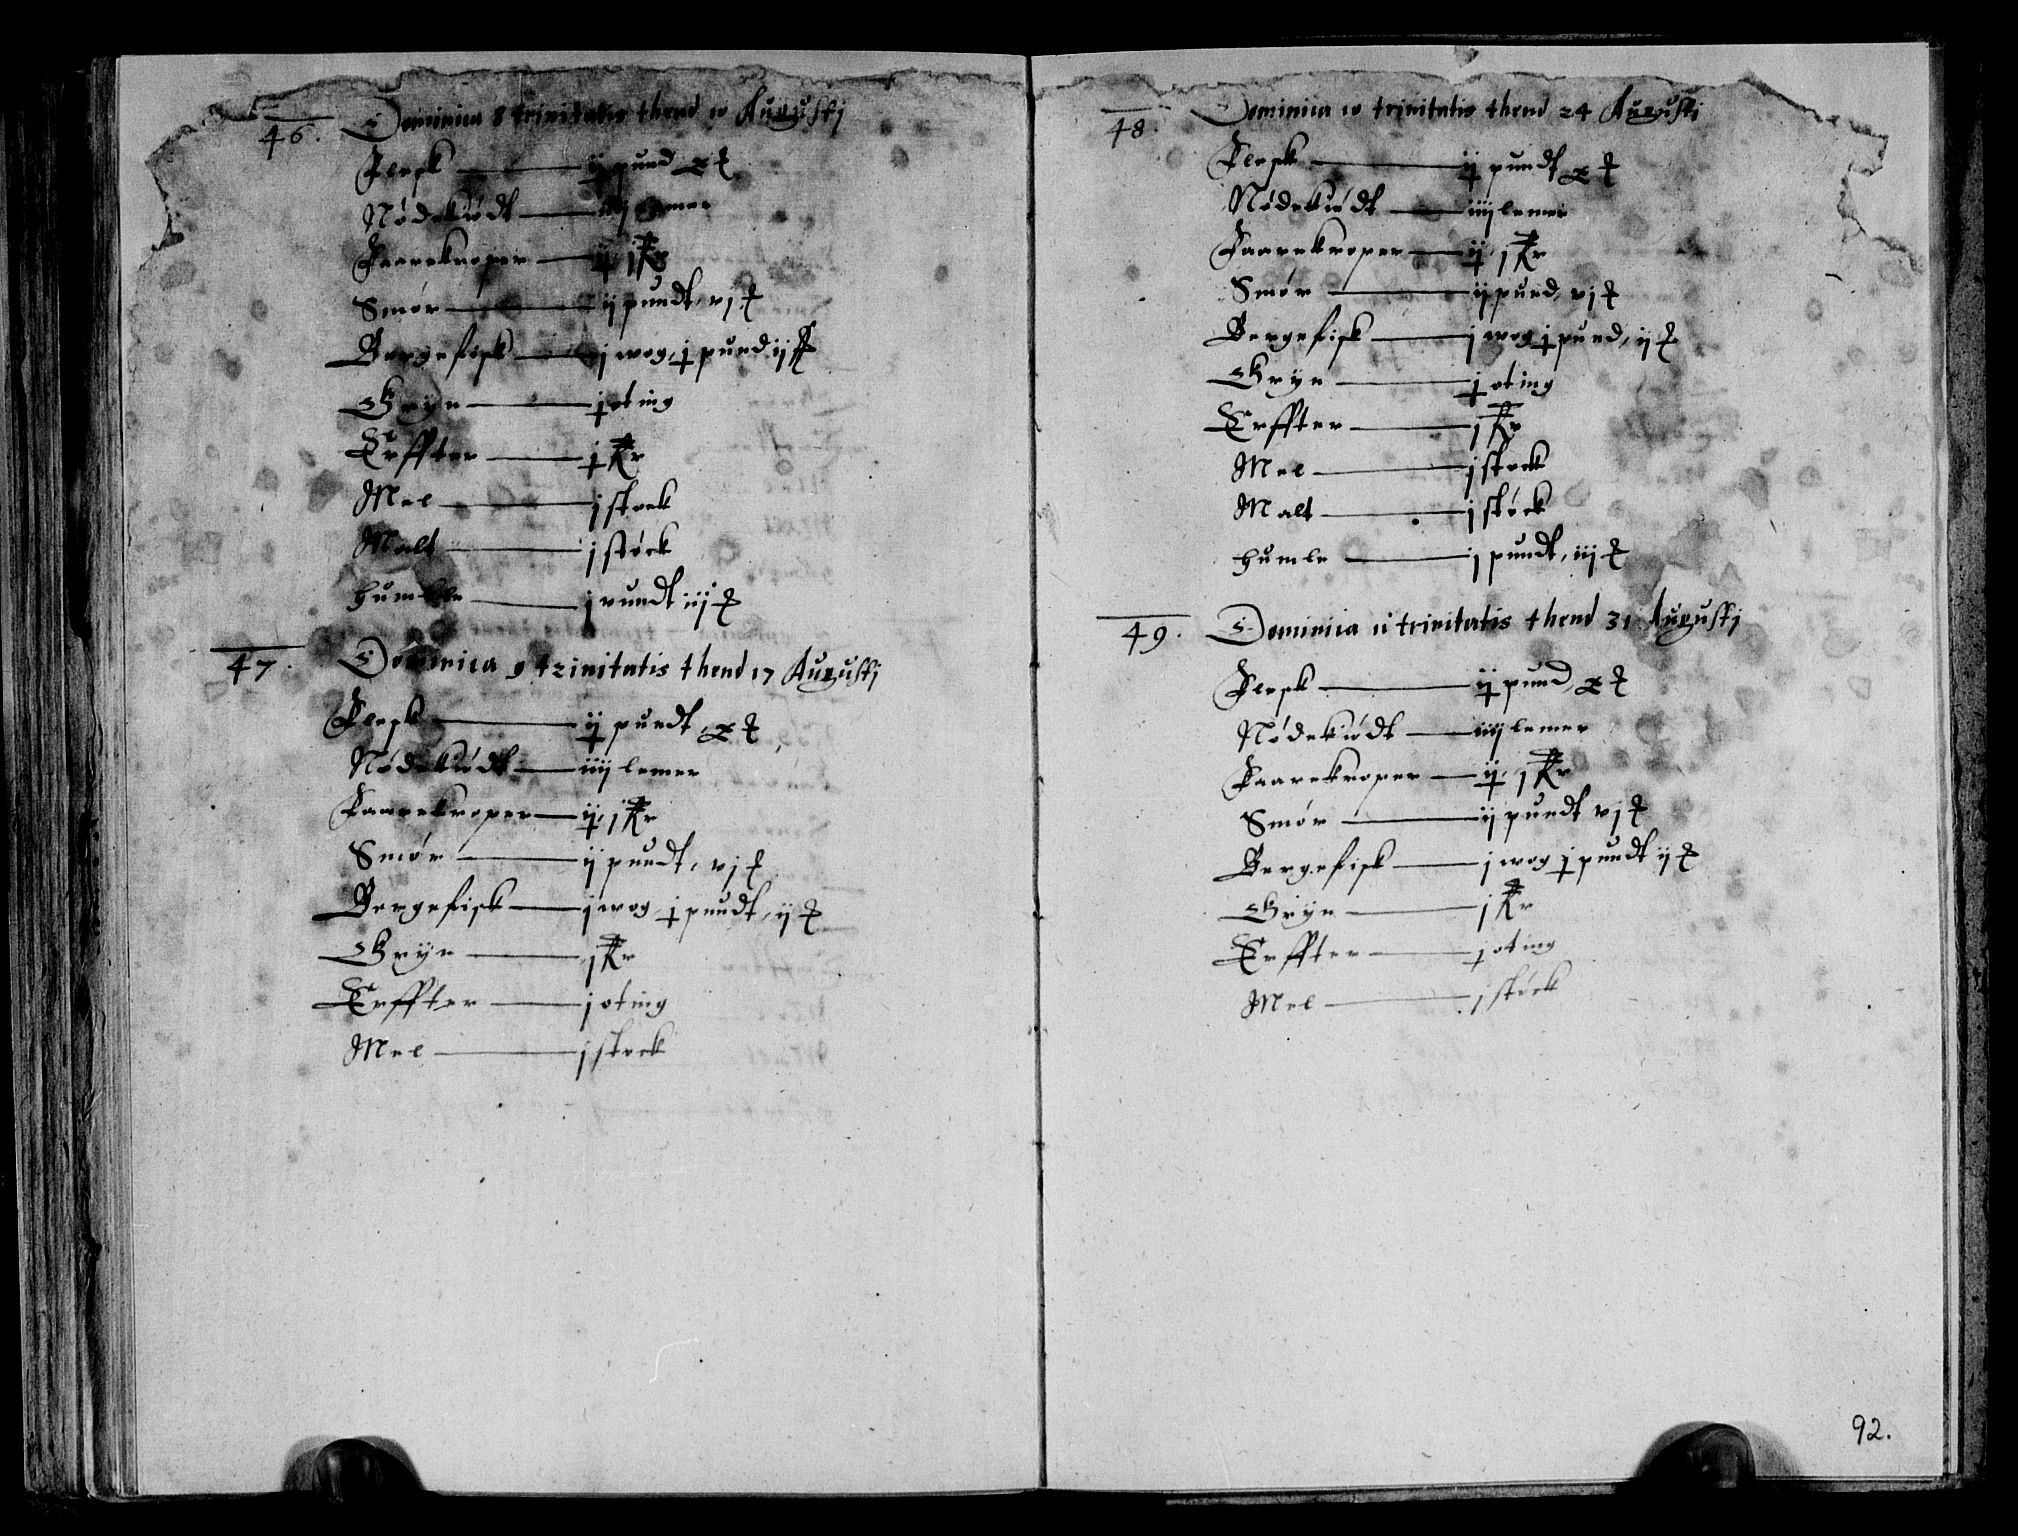 46. Dominica 8 trinitatis thend 10 Augustj
Flesk — ij pund x ℔
Nødekiødt — iiij lemer
Faarekroper — ij j Kr
Smør — ij pundt, vj ℔
Bergefisk — j wog, j pund ij ℔
Gryn — j oting
Erffter — j Kr
Mel — j støck
Malt — j støck
Humble — j pundt iij ℔
47. Dominica 9 trinitatis thend 17 Augustj
Flesk — ij pundt, x ℔
Nødekiødt — iiij lemer
Faarekroper — ij, j Kr
Smør — ij pundt, vj ℔
Bergefisk — j wog j pundt, ij ℔
Gryn — j Kr
Erffter — j oting
Mel — j støck
48. Dominica 10 trinitatis thend 24 Augustj
Flesk — ij pundt x ℔
Nødekiødt — iiij lemer
Faarekroper — ij, j Kr
Smør — ij pund, vj ℔
Bergefisk — j wog j pund, ij ℔
Gryn — j oting
Erffter — j Kr
Mel — j støck
Malt — j støck
humle — j pundt, iij ℔
49. Dominica 11 trinitatis thend 31 Augustj
Flesk — ij pund x ℔
Nødekiødt — iiij lemer
Faarekroper — ij, j Kr
Smør — ij pundt vj ℔
Bergefisk — j wog j pundt ij ℔
Gryn — j Kr
Erffter — j oting
Mel — j støck
92.